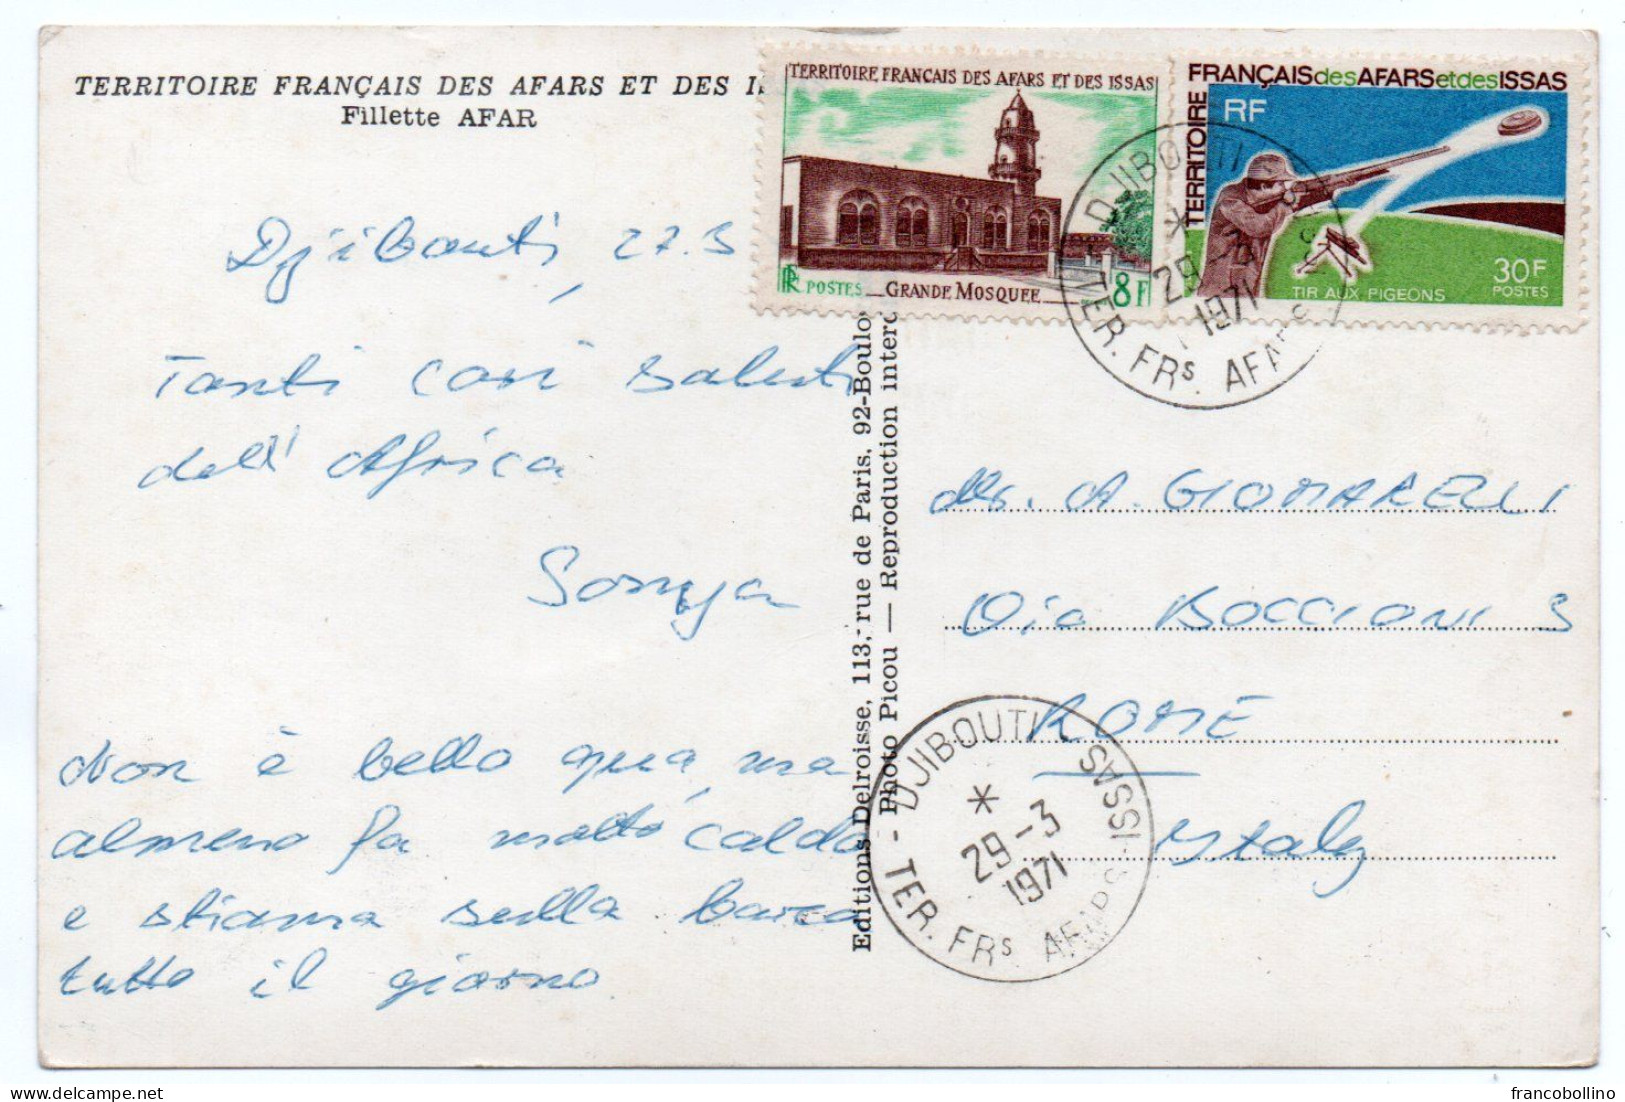 TERRITOIRE FRANÇAIS DES AFARS ET DES IS
Fillette AFAR
Djibouti, 27.3
Tanti cari saluti
dell'Africa
Sonya
Non è bello qua, ma
almeno fa molto caldo
e stiamo sulla barca
tutto il giorno
Editions Delroisse, 113, rue de Paris, 92-Boulo
Photo Picou — Reproduction interd
TERRITOIRE FRANCAIS DES AFARS ET DES ISSAS
RF POSTES GRANDE MOSQUEE 8F
TERRITOIRE FRANÇAIS des AFARS et des ISSAS
RF
30F
POSTES
TIR AUX PIGEONS
DJIBOUTI
*
29-3
1971
TER. FRs. AFARS
A. GIOMARELLI
Via BOCCIONI 3
ROME
Italy
DJIBOUTI
*
29-3
1971
TER. FRs AFARS ISSAS
francobollino